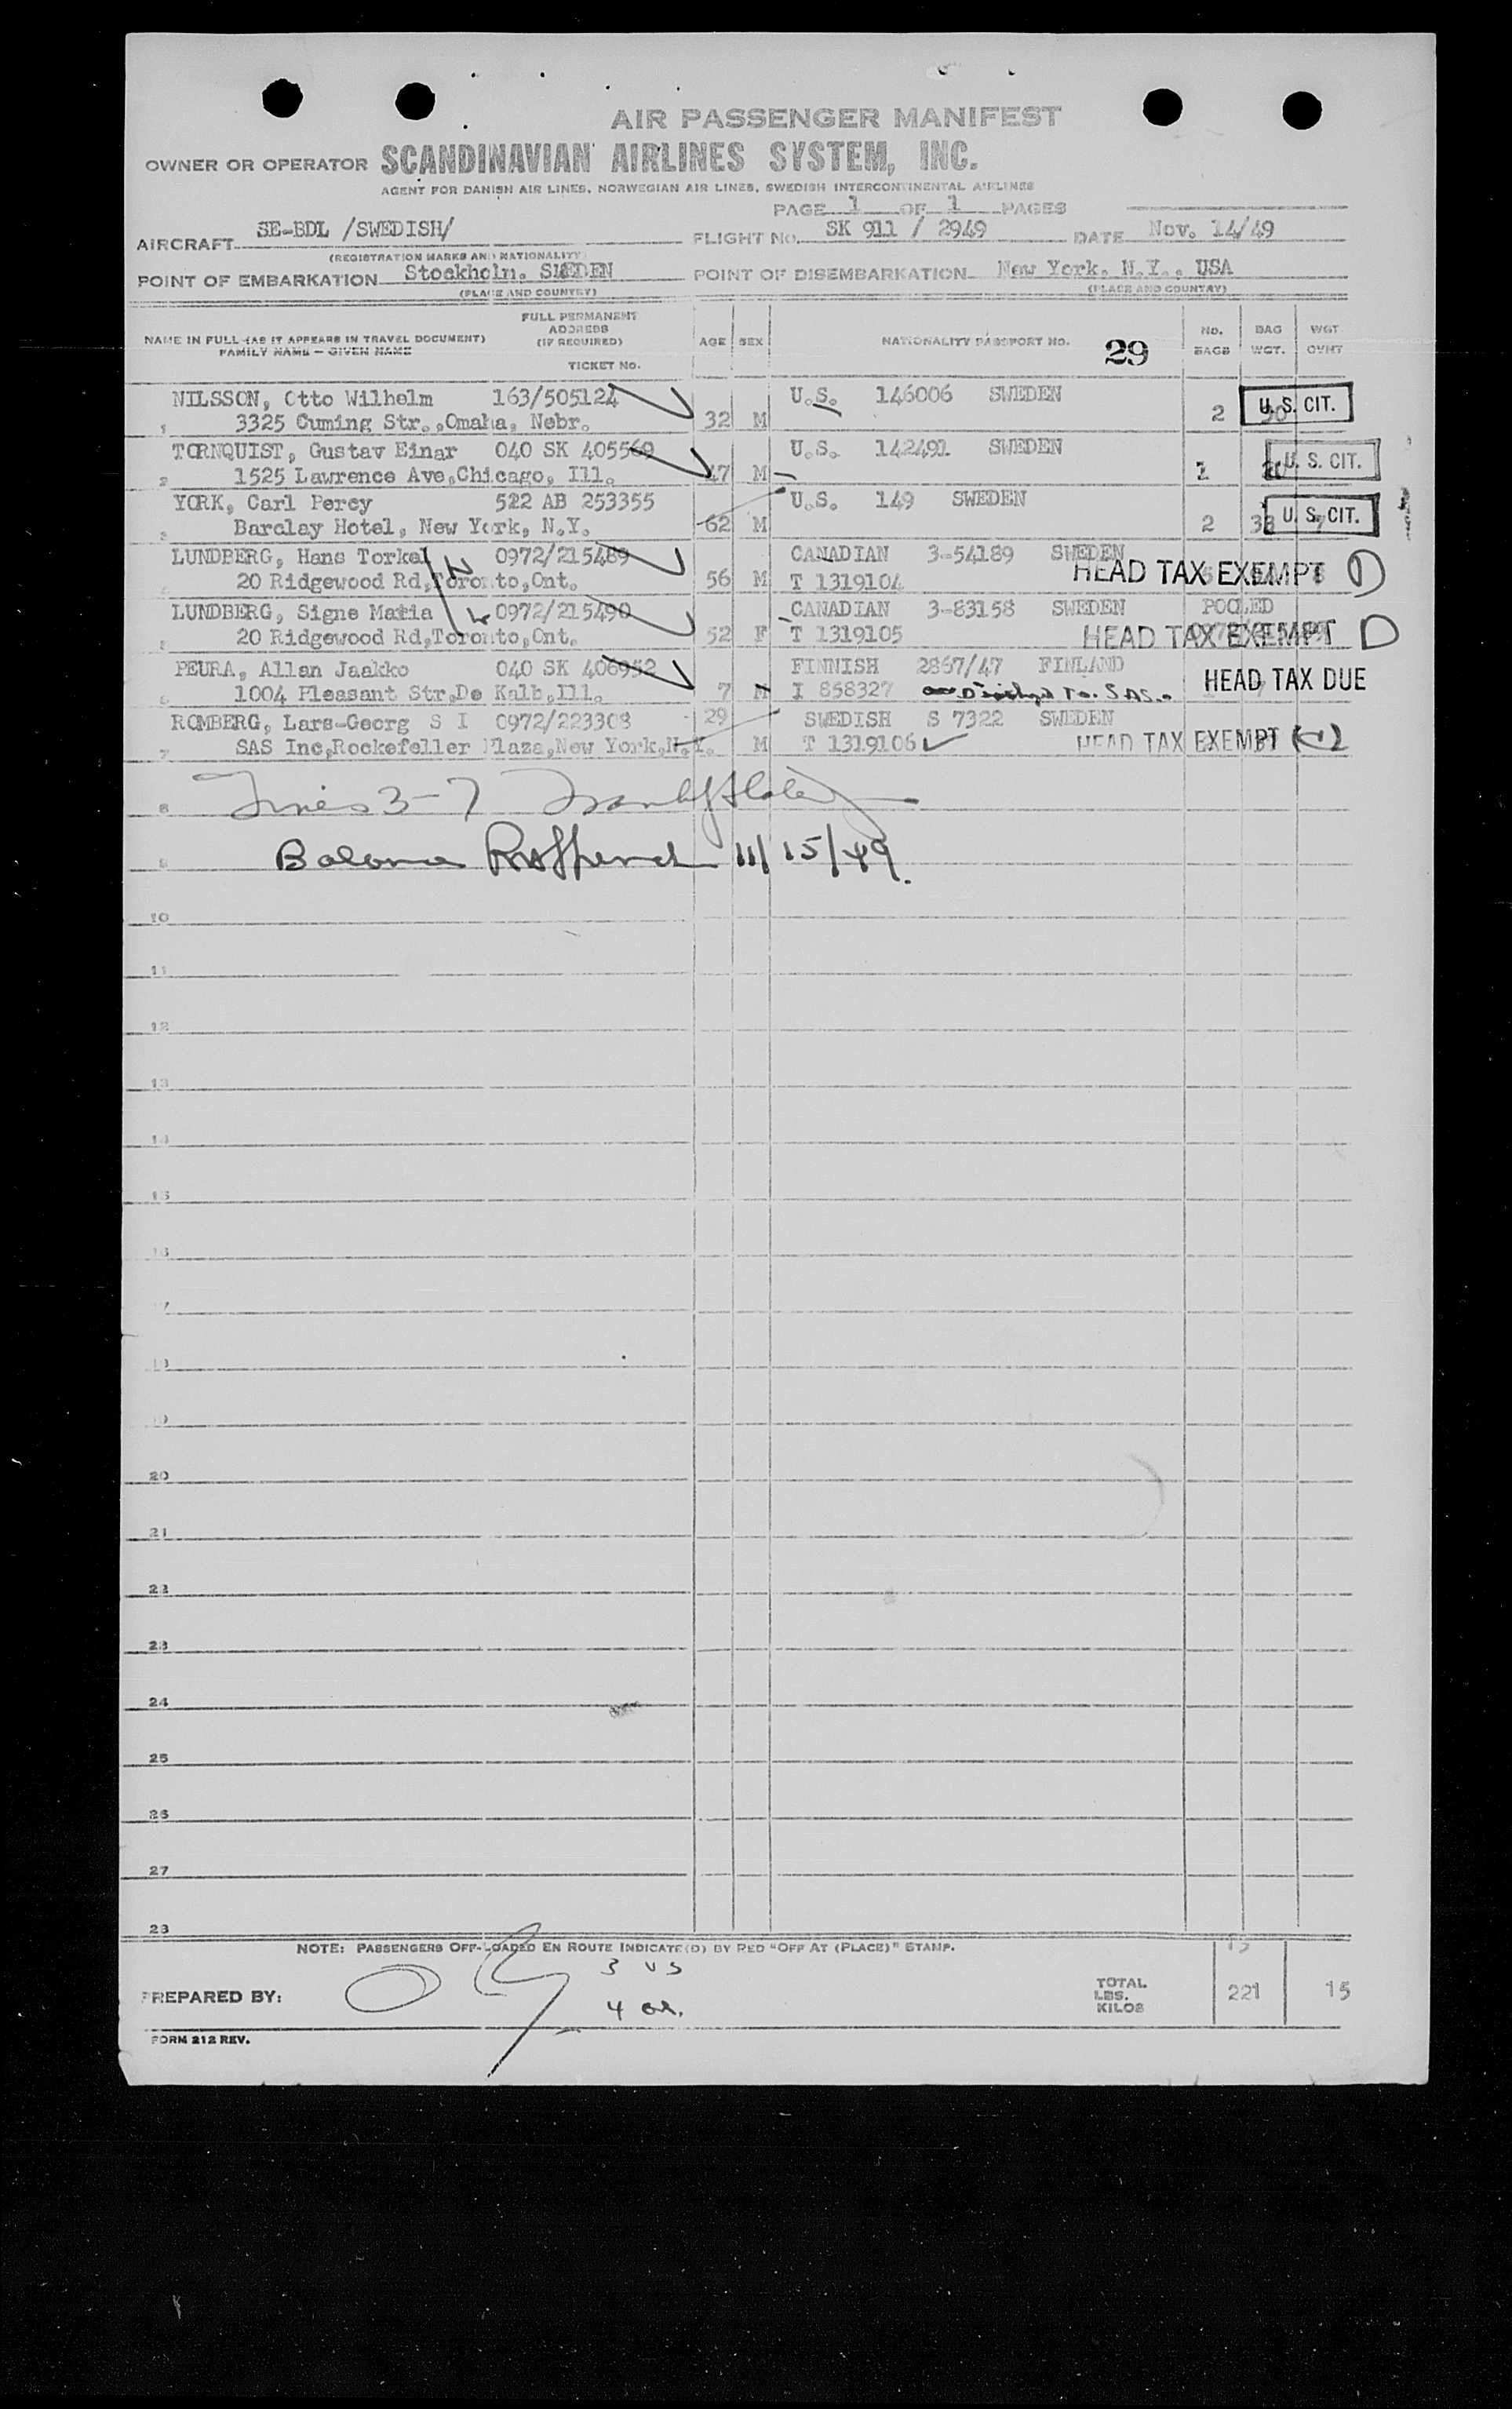 AIR PASSENGER MANIFEST
OWNER OR OPERATOR SCANDINAVIAN AIRLINES SYSTEM, INC.
AGENT FOR DANISH AIR LINES, NORWEGIAN AIR LINES, SWEDISH INTERCONTINENTAL AIRLINES
PAGE 1 OF 1 PAGES
AIRCRAFT SE-BDL /SWEDISH/ FLIGHT NO. SK 911 / 2949 DATE Nov. 14/49
(REGISTRATION MARKS AND NATIONALITY)
POINT OF EMBARKATION Stockholm. SWEDEN POINT OF DISEMBARKATION New York. N.Y., USA
(PLACE AND COUNTRY) (PLACE AND COUNTRY)
NAME IN FULL (AS IT APPEARS IN TRAVEL DOCUMENT) FAMILY NAME — GIVEN NAME
FULL PERMANENT ADDRESS (IF REQUIRED) TICKET NO.
AGE SEX NATIONALITY PASSPORT NO. 29 NO. BAGS BAG WGT. WGT OVHT
NILSSON, Otto Wilhelm 163/505124 U.S. 146006 SWEDEN
1 3325 Cuming Str.,Omaha, Nebr. 32 M 2 U. S. CIT.
TORNQUIST, Gustav Einar 040 SK 405569 U.S. 142491 SWEDEN
2 1525 Lawrence Ave,Chicago, Ill. 47 M U. S. CIT.
YORK, Carl Percy 522 AB 253355 U.S. 149 SWEDEN
3 Barclay Hotel, New York, N.Y. 62 M 2 33 U. S. CIT. 7
LUNDBERG, Hans Torkel 0972/215489 CANADIAN 3-54189 SWEDEN
4 20 Ridgewood Rd,Toronto,Ont. 56 M T 1319104 HEAD TAX EXEMPT
LUNDBERG, Signe Maria 0972/215490 CANADIAN 3-83158 SWEDEN POOLED
5 20 Ridgewood Rd,Toronto,Ont. 52 F T 1319105 HEAD TAX EXEMPT
PEURA, Allan Jaakko 040 SK 406952 FINNISH 2867/47 FINLAND
6 1004 Pleasant Str,De Kalb,Ill. 7 M I 858327 to S.A.S. HEAD TAX DUE
ROMBERG, Lars-Georg S I 0972/223308 29 SWEDISH S 7322 SWEDEN
7 SAS Inc,Rockefeller Plaza,New York,N.Y. M T 1319106 HEAD TAX EXEMPT
8 Lines 3-7
9 Balance 11/15/49.
10
11
12
13
14
15
16
17
18
19
20
21
22
23
24
25
26
27
28
NOTE: PASSENGERS OFF-LOADED EN ROUTE INDICATE(D) BY RED "OFF AT (PLACE)" STAMP. 15
3 US
PREPARED BY: 4 al. TOTAL LBS. KILOS 221 15
FORM 212 REV.